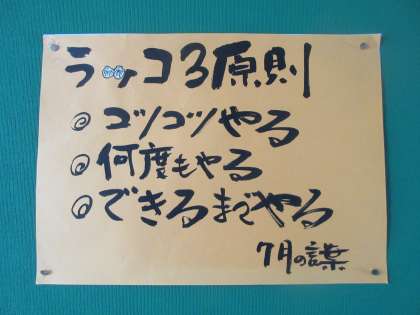 ラッコ3原則
◎コツコツやる
◎何度もやる
◎できるまでやる
7月の言葉